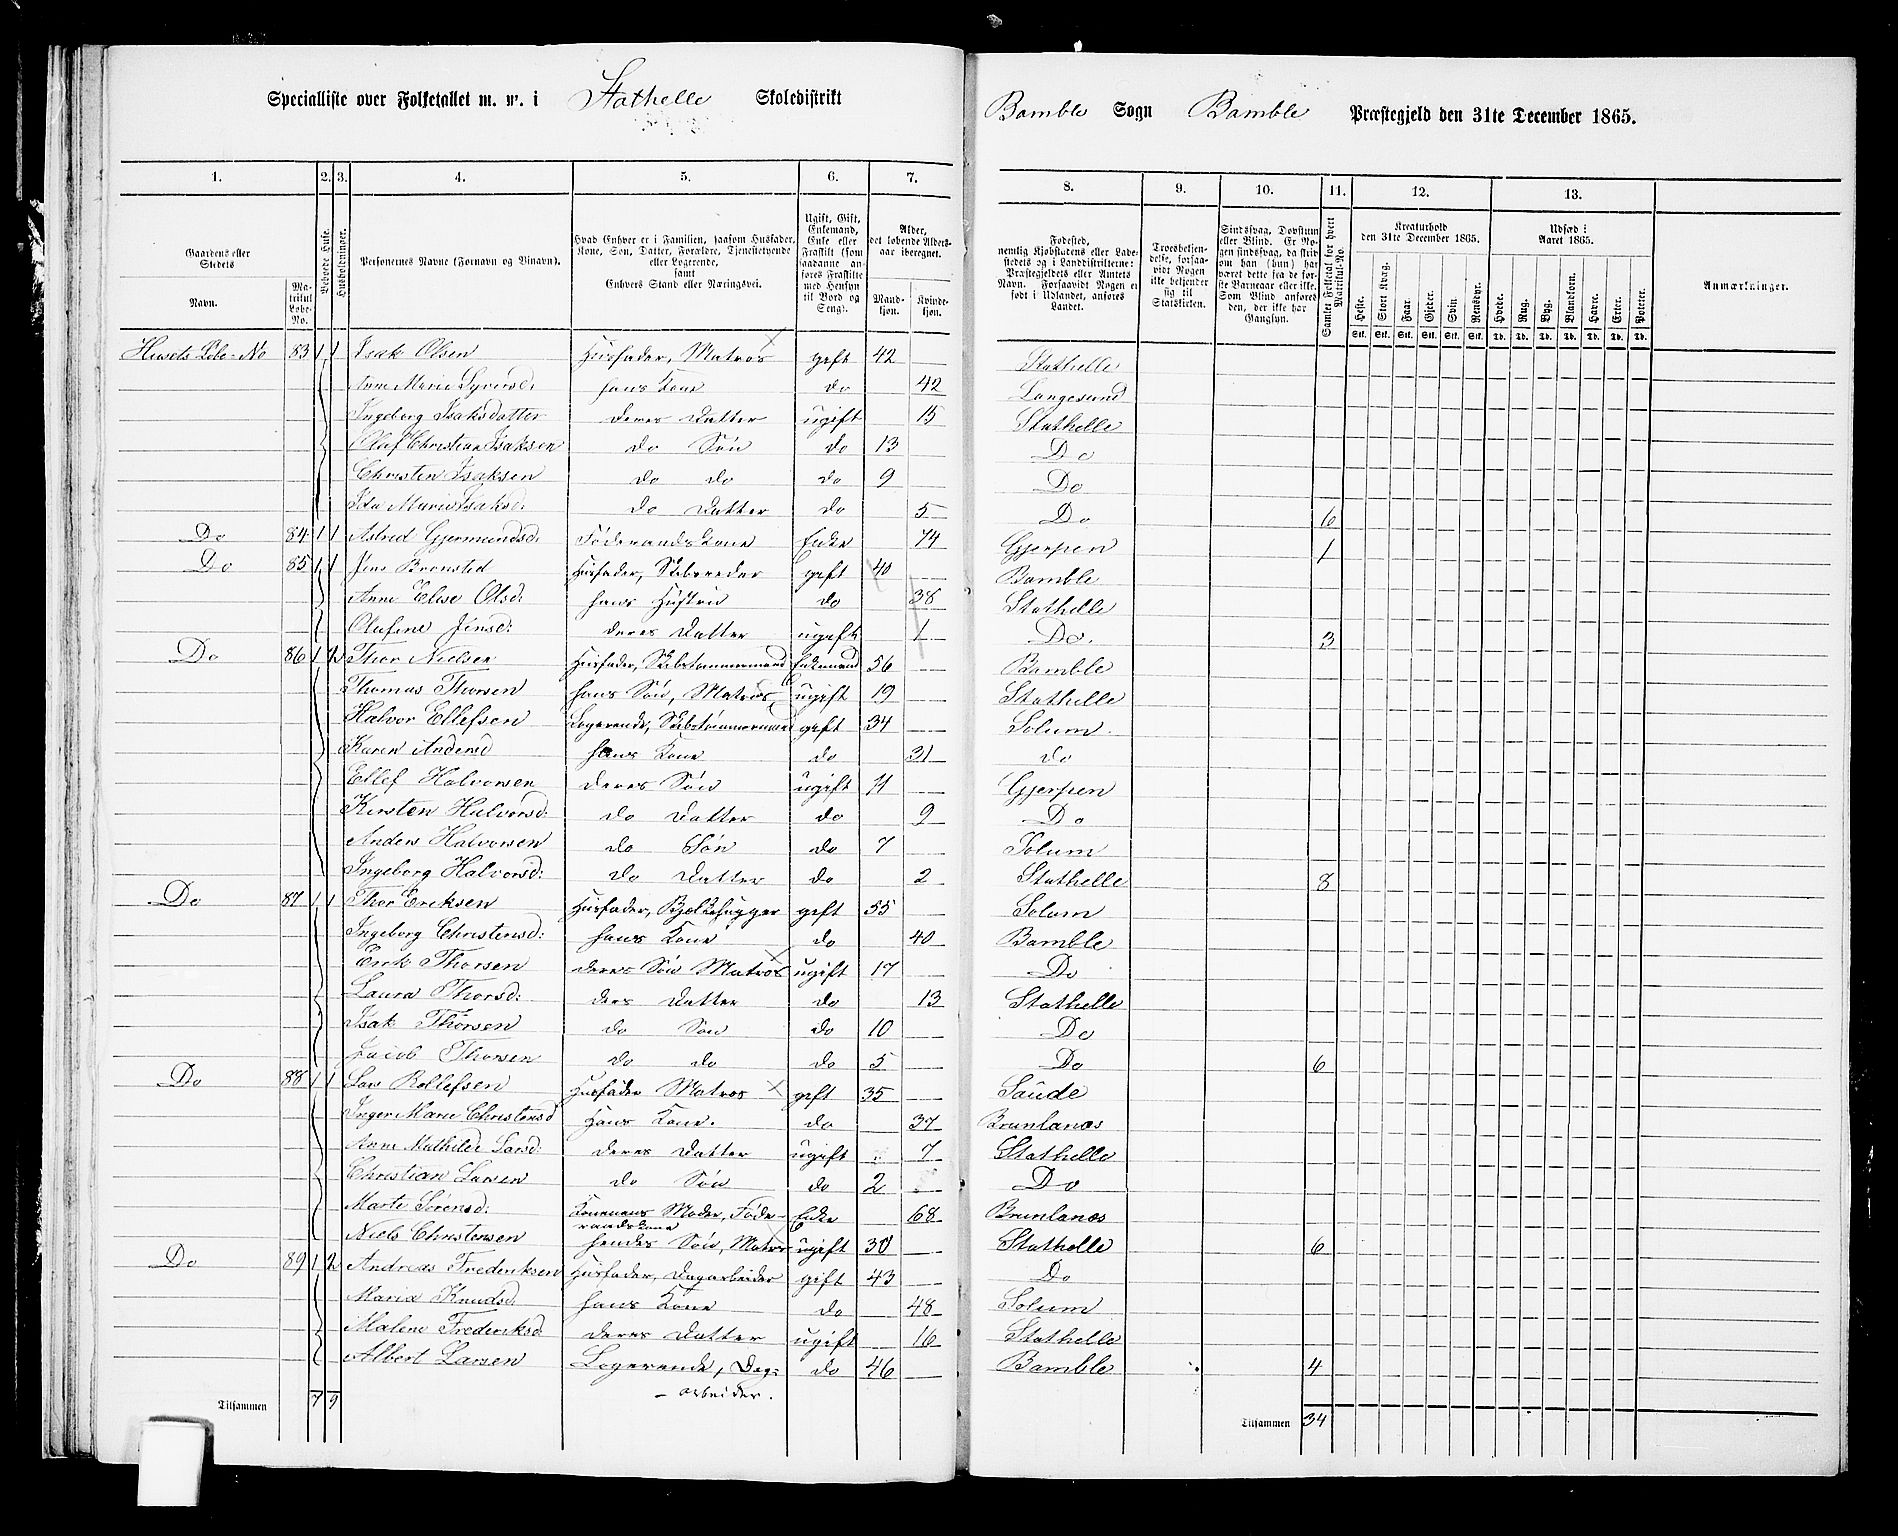 Specialliste over Folketallet m. v. i Stathelle Skoledistrikt
Bamble Sogn Bamble Præstegjeld den 31te December 1865.
1. 2. 3. 4. 5. 6. 7. 8. 9. 10. 11. 12. 13.
Gaardens eller Stedets
Navn.
Matrikul Løbe-No.
Beboede Huse.
Husholdninger.
Personernes Navne (Fornavn og Tilnavn).
Hvad Enhver er i Familien, saasom Husfader, Kone, Søn, Datter, Forældre, Tjenestetyende eller Logerende, samt Enhvers Stand eller Næringsvei.
Ugift, Gift, Enkemand, Enke eller Fraskilt (som saadanne anføres Fraskilte med Hensyn til Bord og Seng).
Alder, det løbende Alders-aar iberegnet.
Mandkjøn.
Kvindekjøn.
Fødested, nemlig Kjøbstadens eller Ladestedets og i Landdistrikterne: Præstegjeldets eller Amtets Navn. Forsaavidt Nogen er født i Udlandet, anføres Landet.
Troesbekjendelse, forsaavidt Nogen ikke bekjender sig til Statskirken.
Sindssvag, Døvstum eller Blind. Er Nogen sindssvag, da skrives om han (hun) har været dette fra de første Barneaar eller ikke. Som Blind anføres den, der ikke har Gangsyn.
Samlet Folketal for hvert Matrikul-No.
Kreaturhold den 31te December 1865.
Heste. Stort Kvæg. Faar. Gjeder. Svin. Rensdyr.
Stk. Stk. Stk. Stk. Stk. Stk.
Udsæd i Aaret 1865.
Hvede. Rug. Byg. Blandkorn. Havre. Erter. Poteter.
Td. Td. Td. Td. Td. Td. Td.
Anmærkninger.
Husets Løbe-No 83 1 1 Isak Olsen Husfader, Matros gift 42 Stathelle
Anne Marie Syversd: hans Kone do 42 Langesund
Ingeborg Isaksdatter deres Datter ugift 15 Stathelle
Olaf Christian Isaksen do Søn do 13 Do
Christen Isaksen do do do 9 Do
Ida Marie Isaksd: do Datter do 5 Do 6
Do 84 1 1 Astrid Gjermundsd: Føderaadskone Enke 74 Gjerpen 1
Do 85 1 1 Jens Brønsted Husfader, Skibsreder gift 40 Bamble
Anne Elise Olsd: hans Hustru do 38 Stathelle
Olafine Jensd: deres Datter ugift 1 Do. 3
Do 86 1 2 Thor Nielsen Husfader, Skibstømmermand Enkemand 56 Bamble
Thomas Thorsen hans Søn, Matros ugift 19 Stathelle
Halvor Ellefsen Logerende, Skibstømmermand gift 34 Solum.
Karen Andersd hans Kone do 31 do
Ellef Halvorsen deres Søn ugift 11 Gjerpen
Kirsten Halvorsd: do Datter do 9 Do
Anders Halvorsen do Søn do 7 Solum
Ingeborg Halvorsd: do Datter do 2 Stathelle 8
Do 87 1 1 Thor Eriksen Husfader, Bjælkehugger gift 55 Solum
Ingeborg Christensd: hans Kone do 40 Bamble
Erik Thorsen deres Søn Matros ugift 17 Do
Laura Thorsd: ders Datter do 13 Stathelle
Isak Thorsen do Søn do 10 Do
Jacob Thorsen do do do 5 Do 6
Do 88 1 1 Lars Rollefsen Husfader Matros gift 35 Saude
Inger Marie Christensd Hans Kone. do 37 Brunlanæs
Anne Mathilde Larsd: deres Datter ugift 7 Stathelle
Christian Larsen do Søn do 2 Do
Marte Sørensd: Konenens Moder, Føderaadskone Enke 68 Brunlanæs
Niels Christensen hendes Søn, Matros ugift 30 Stathelle 6
Do 89 1 2 Andreas Frederiksen Husfader, Dagarbeider gift 43 Do
Maria Knudsd. hans Kone do 48 Solum
Malene Frederiksd deres Datter ugift 16 Stathelle
Albert Larsen Logerende, Dag- do 46 Bamble 4
arbeider.
Tilsammen 7 9
Tilsammen 34